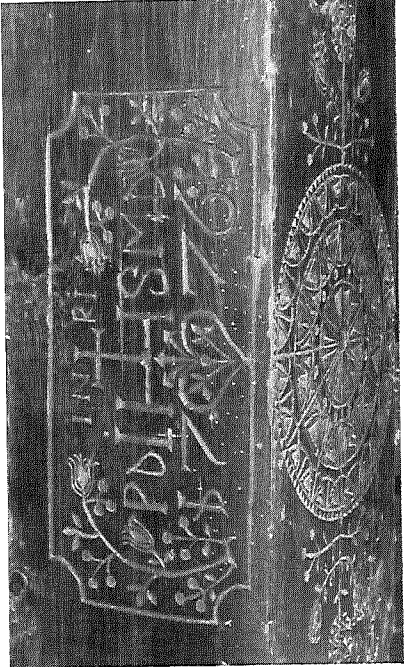 IN RI
P D IHS M
17 76